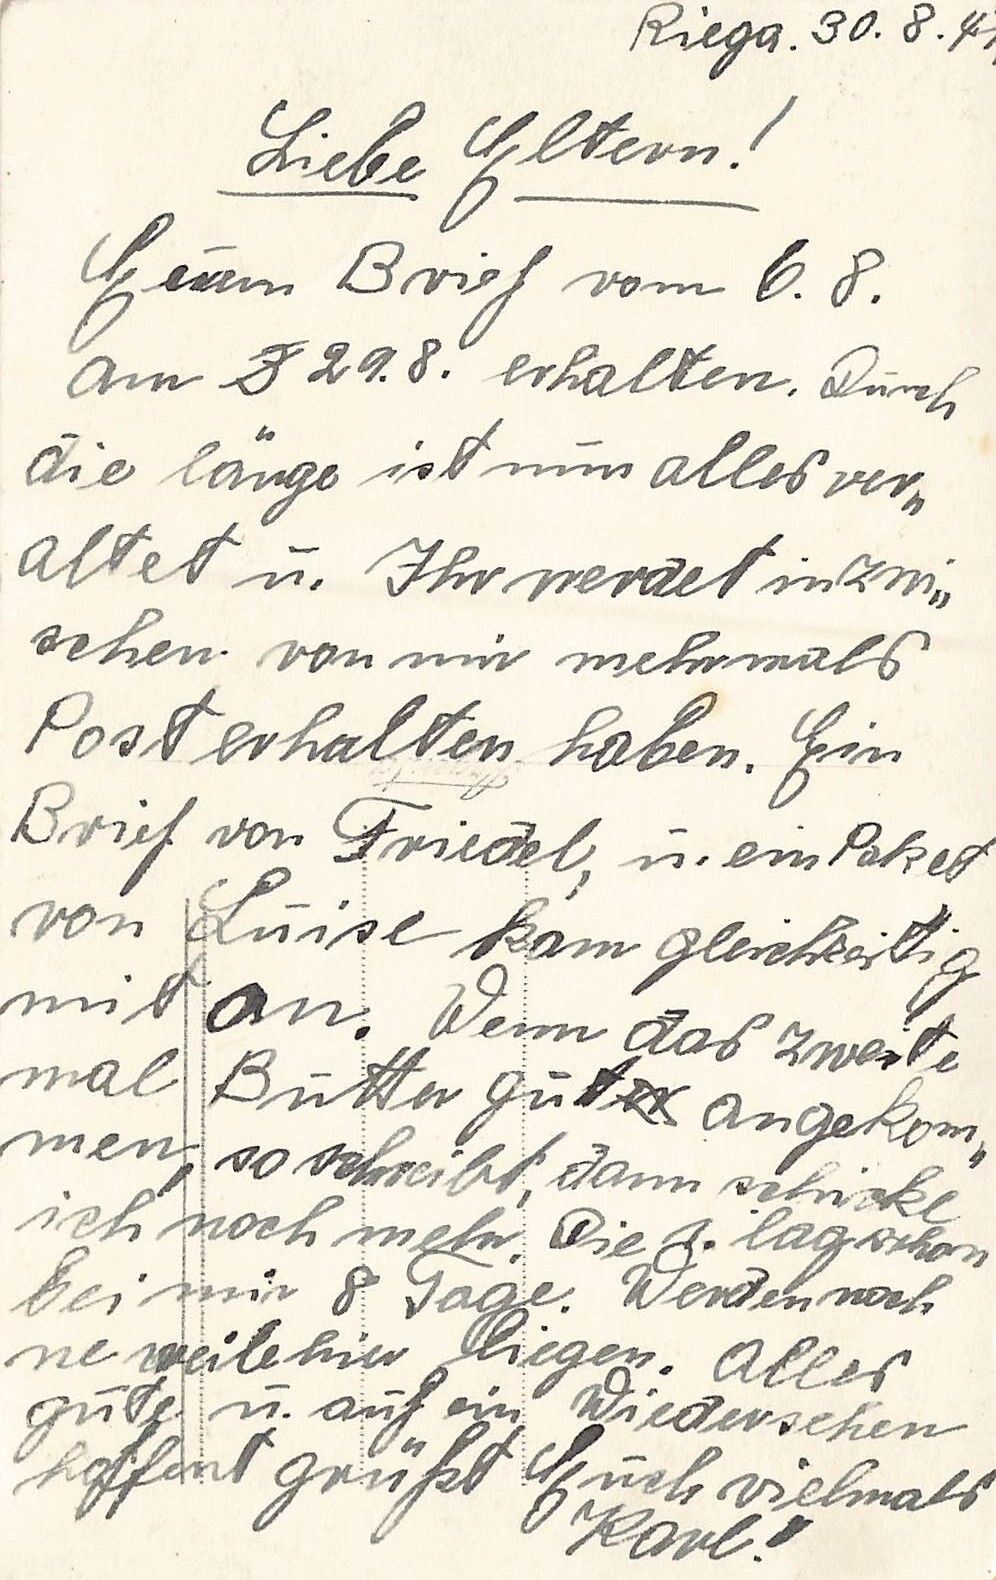 Riega. 30. 8. 41
Liebe Eltern!
Euern Brief vom 6. 8.
am 29.8. erhalten. Durch
die länge ist nun alles ver„
altet u. Ihr werdet inzwi„
schen von mir mehrmals
Post erhalten haben. Ein
Brief von Friedel, u. ein Paket
von Luise kam gleichzeitig
mit an. Wenn das zweite
mal Butter gut angekom„
men, so schreibt, dann schicke
ich noch mehr. Die 2. lag schon
bei mir 8 Tage. Werden noch
ne weile hier liegen. Alles
gute u. auf ein Wiedersehen
hoffent grüßt Euch vielmals
Karl!